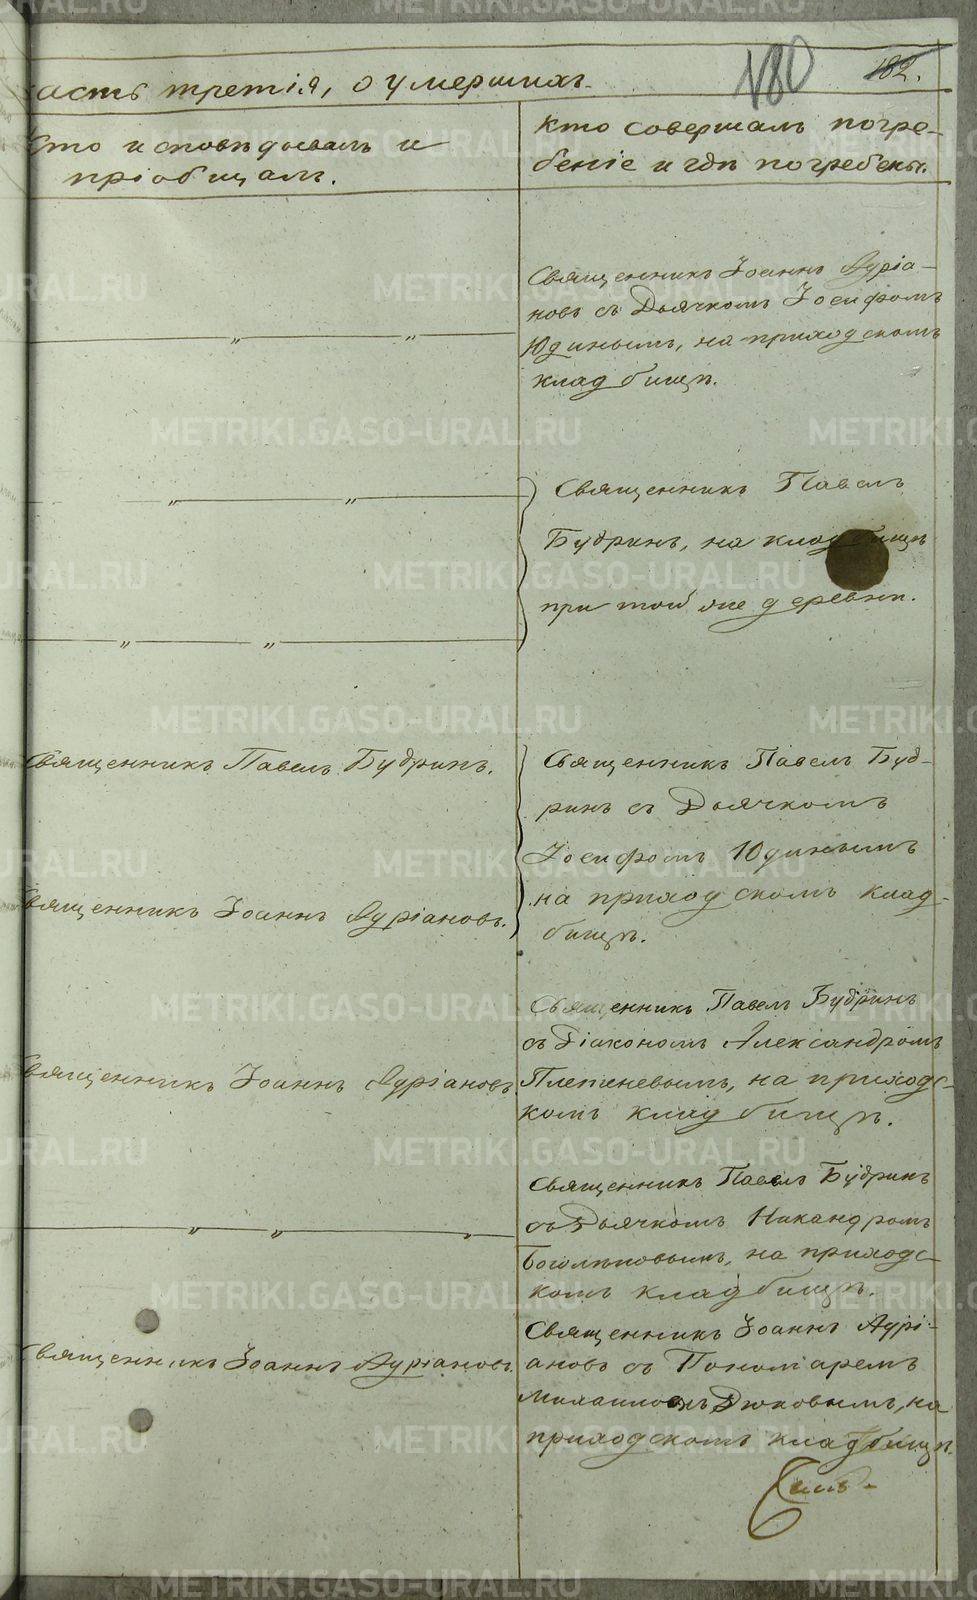 180
182.
асть третія, о умершихъ.
Кто исповѣдовалъ и
пріобщалъ.
Кто совершалъ погре-
беніе и гдѣ погребены.
Священникъ Іоаннъ Луріа-
новъ съ Дьячкомъ Іосифомъ
Юдинымъ, на приходскомъ
кладбищѣ.
Священникъ Павелъ
Будринъ, на кладбищѣ
при той же деревни.
Священникъ Павелъ Будринъ.
Священникъ Павелъ Буд-
ринъ съ Дьячкомъ
Іосифомъ Юдинымъ
на приходскомъ клад-
бищѣ.
Священникъ Іоаннъ Луріановъ.
Священникъ Павелъ Будринъ
съ Діакономъ Александромъ
Плетеневымъ, на приходс-
комъ кладбищѣ.
Священникъ Іоаннъ Луріановъ.
Священникъ Павелъ Будринъ
съ Дьячкомъ Никандромъ
Боголѣповымъ, на приходс-
комъ кладбищѣ.
Священникъ Іоаннъ Лурі-
ановъ съ Пономаремъ
Михаиломъ Дюковымъ, на
приходскомъ кладбищѣ.
Священникъ Іоаннъ Луріановъ.
METRIKI.GASO-URAL.RU